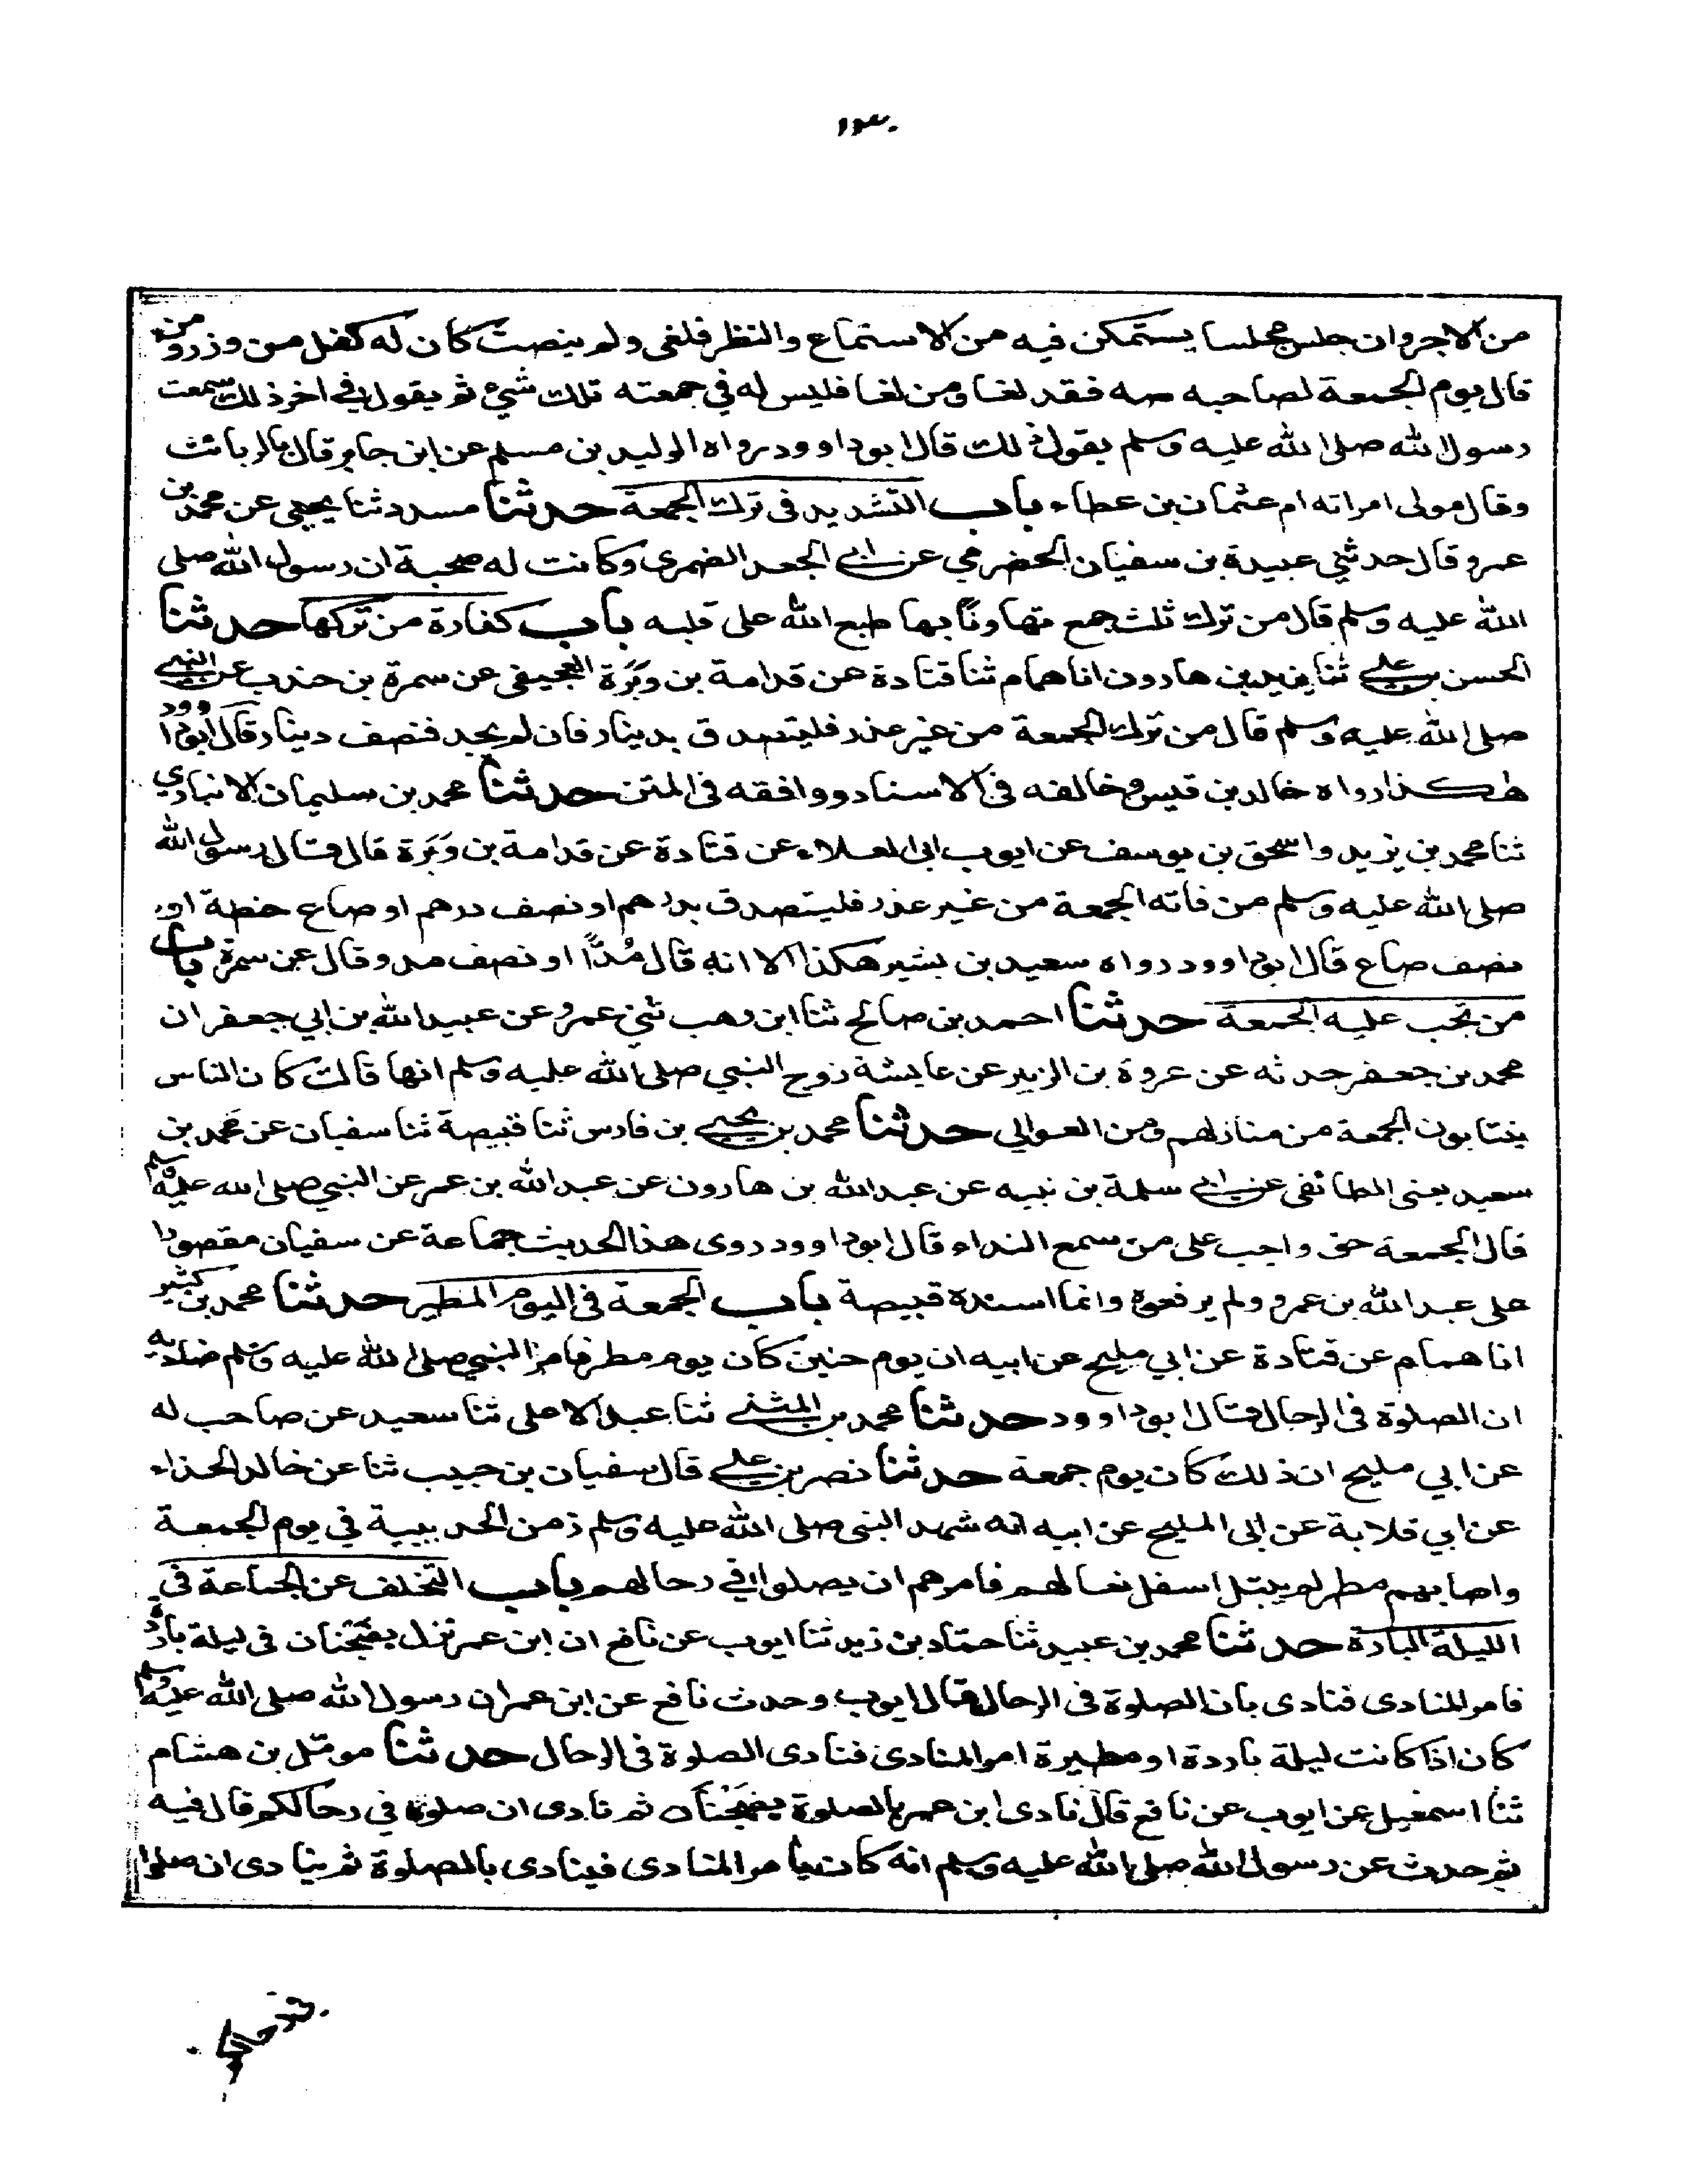 ١٣٠
من الاجر وان جلس مجلسا يستمكن فيه من الاستماع والنظر فلغى ولم ينصت كان له كفل من وزر ومن
قال يوم الجمعة لصاحبه صه فقد لغا ومن لغا فليس له في جمعته تلك شيء ثم يقول في اخر ذلك سمعت
رسول الله صلى الله عليه وسلم يقول ذلك قال ابو داوود رواه الوليد بن مسلم عن ابن جابر قال بالربائث
وقال مولى امراته ام عثمان بن عطاء باب التشديد في ترك الجمعة حدثنا مسدد ثنا يحيى عن محمد بن
عمرو قال حدثني عبيدة بن سفيان الحضرمي عن ابي الجعد الضمري وكانت له صحبة ان رسول الله صلى
الله عليه وسلم قال من ترك ثلث جمع تهاونًا بها طبع الله على قلبه باب كفارة من تركها حدثنا
الحسن بن علي ثنا يزيد بن هارون انا همام ثنا قتادة عن قدامة بن وَبَرَة العجيفى عن سمرة بن جندب عن النبي
صلى الله عليه وسلم قال من ترك الجمعة من غير عذر فليتصدق بدينار فان لم يجد فنصف دينار قال ابو داوود
هكذا رواه خالد بن قيس وخالفه في الاسناد ووافقه في المتن حدثنا محمد بن سليمان الانباري
ثنا محمد بن يزيد واسحق بن يوسف عن ايوب ابى العلاء عن قتادة عن قدامة بن وَبَرَة قال قال رسول الله
صلى الله عليه وسلم من فاته الجمعة من غير عذر فليتصدق بدرهم او نصف درهم او صاع حنطة او
نصف صاع قال ابو داوود رواه سعيد بن بشير هكذا الا انه قال مُدًّا او نصف مد وقال عن سمرة باب
من تجب عليه الجمعة حدثنا احمد بن صالح ثنا ابن وهب ثني عمرو عن عبيد الله بن ابي جعفر ان
محمد بن جعفر حدثه عن عروة بن الزبير عن عايشة زوج النبي صلى الله عليه وسلم انها قالت كان الناس
ينتابون الجمعة من منازلهم ومن العوالي حدثنا محمد بن يحيى بن فارس ثنا قبيصة ثنا سفيان عن محمد بن
سعيد يعنى الطائفى عن ابي سلمة بن نبيه عن عبد الله بن هارون عن عبد الله بن عمر عن النبي صلى الله عليه وسلم
قال الجمعة حق واجب على من سمع النداء قال ابو داوود روى هذا الحديث جماعة عن سفيان مقصورا
على عبد الله بن عمرو ولم يرفعوه وانما اسنده قبيصة باب الجمعة في اليوم المطير حدثنا محمد بن كثير
انا همام عن قتادة عن ابي مليح عن ابيه ان يوم حنين كان يوم مطر فامر النبي صلى الله عليه وسلم مناديه
ان الصلوة في الرحال قال ابو داوود حدثنا محمد بن المثنى ثنا عبد الاعلى ثنا سعيد عن صاحب له
عن ابي مليح ان ذلك كان يوم جمعة حدثنا نصر بن علي قال سفيان بن حبيب ثنا عن خالد الحذاء
عن ابي قلابة عن ابى المليح عن ابيه انه شهد النبي صلى الله عليه وسلم زمن الحديبية في يوم الجمعة
واصابهم مطر لم يبتل اسفل نعالهم فامرهم ان يصلوا في رحالهم باب التخلف عن الجماعة في
الليلة البادة حدثنا محمد بن عبيد ثنا حماد بن زيد ثنا ايوب عن نافع ان ابن عمر نزل بضجنان في ليلة باردة
فامر المنادى فنادى بان الصلوة في الرحال قال ايوب وحدث نافع عن ابن عمر ان رسول الله صلى الله عليه وسلم
كان اذا كانت ليلة باردة او مطيرة امر المنادى فنادى الصلوة في الرحال حدثنا مومل بن هشام
ثنا اسمعيل عن ايوب عن نافع قال نادى ابن عمر بالصلوة بضَجْنَان ثم نادى ان صلوا في رحالكم قال فيه
ثم حدث عن رسول الله صلى الله عليه وسلم انه كان يأمر المنادى فينادى بالصلوة ثم ينادى ان صلوا